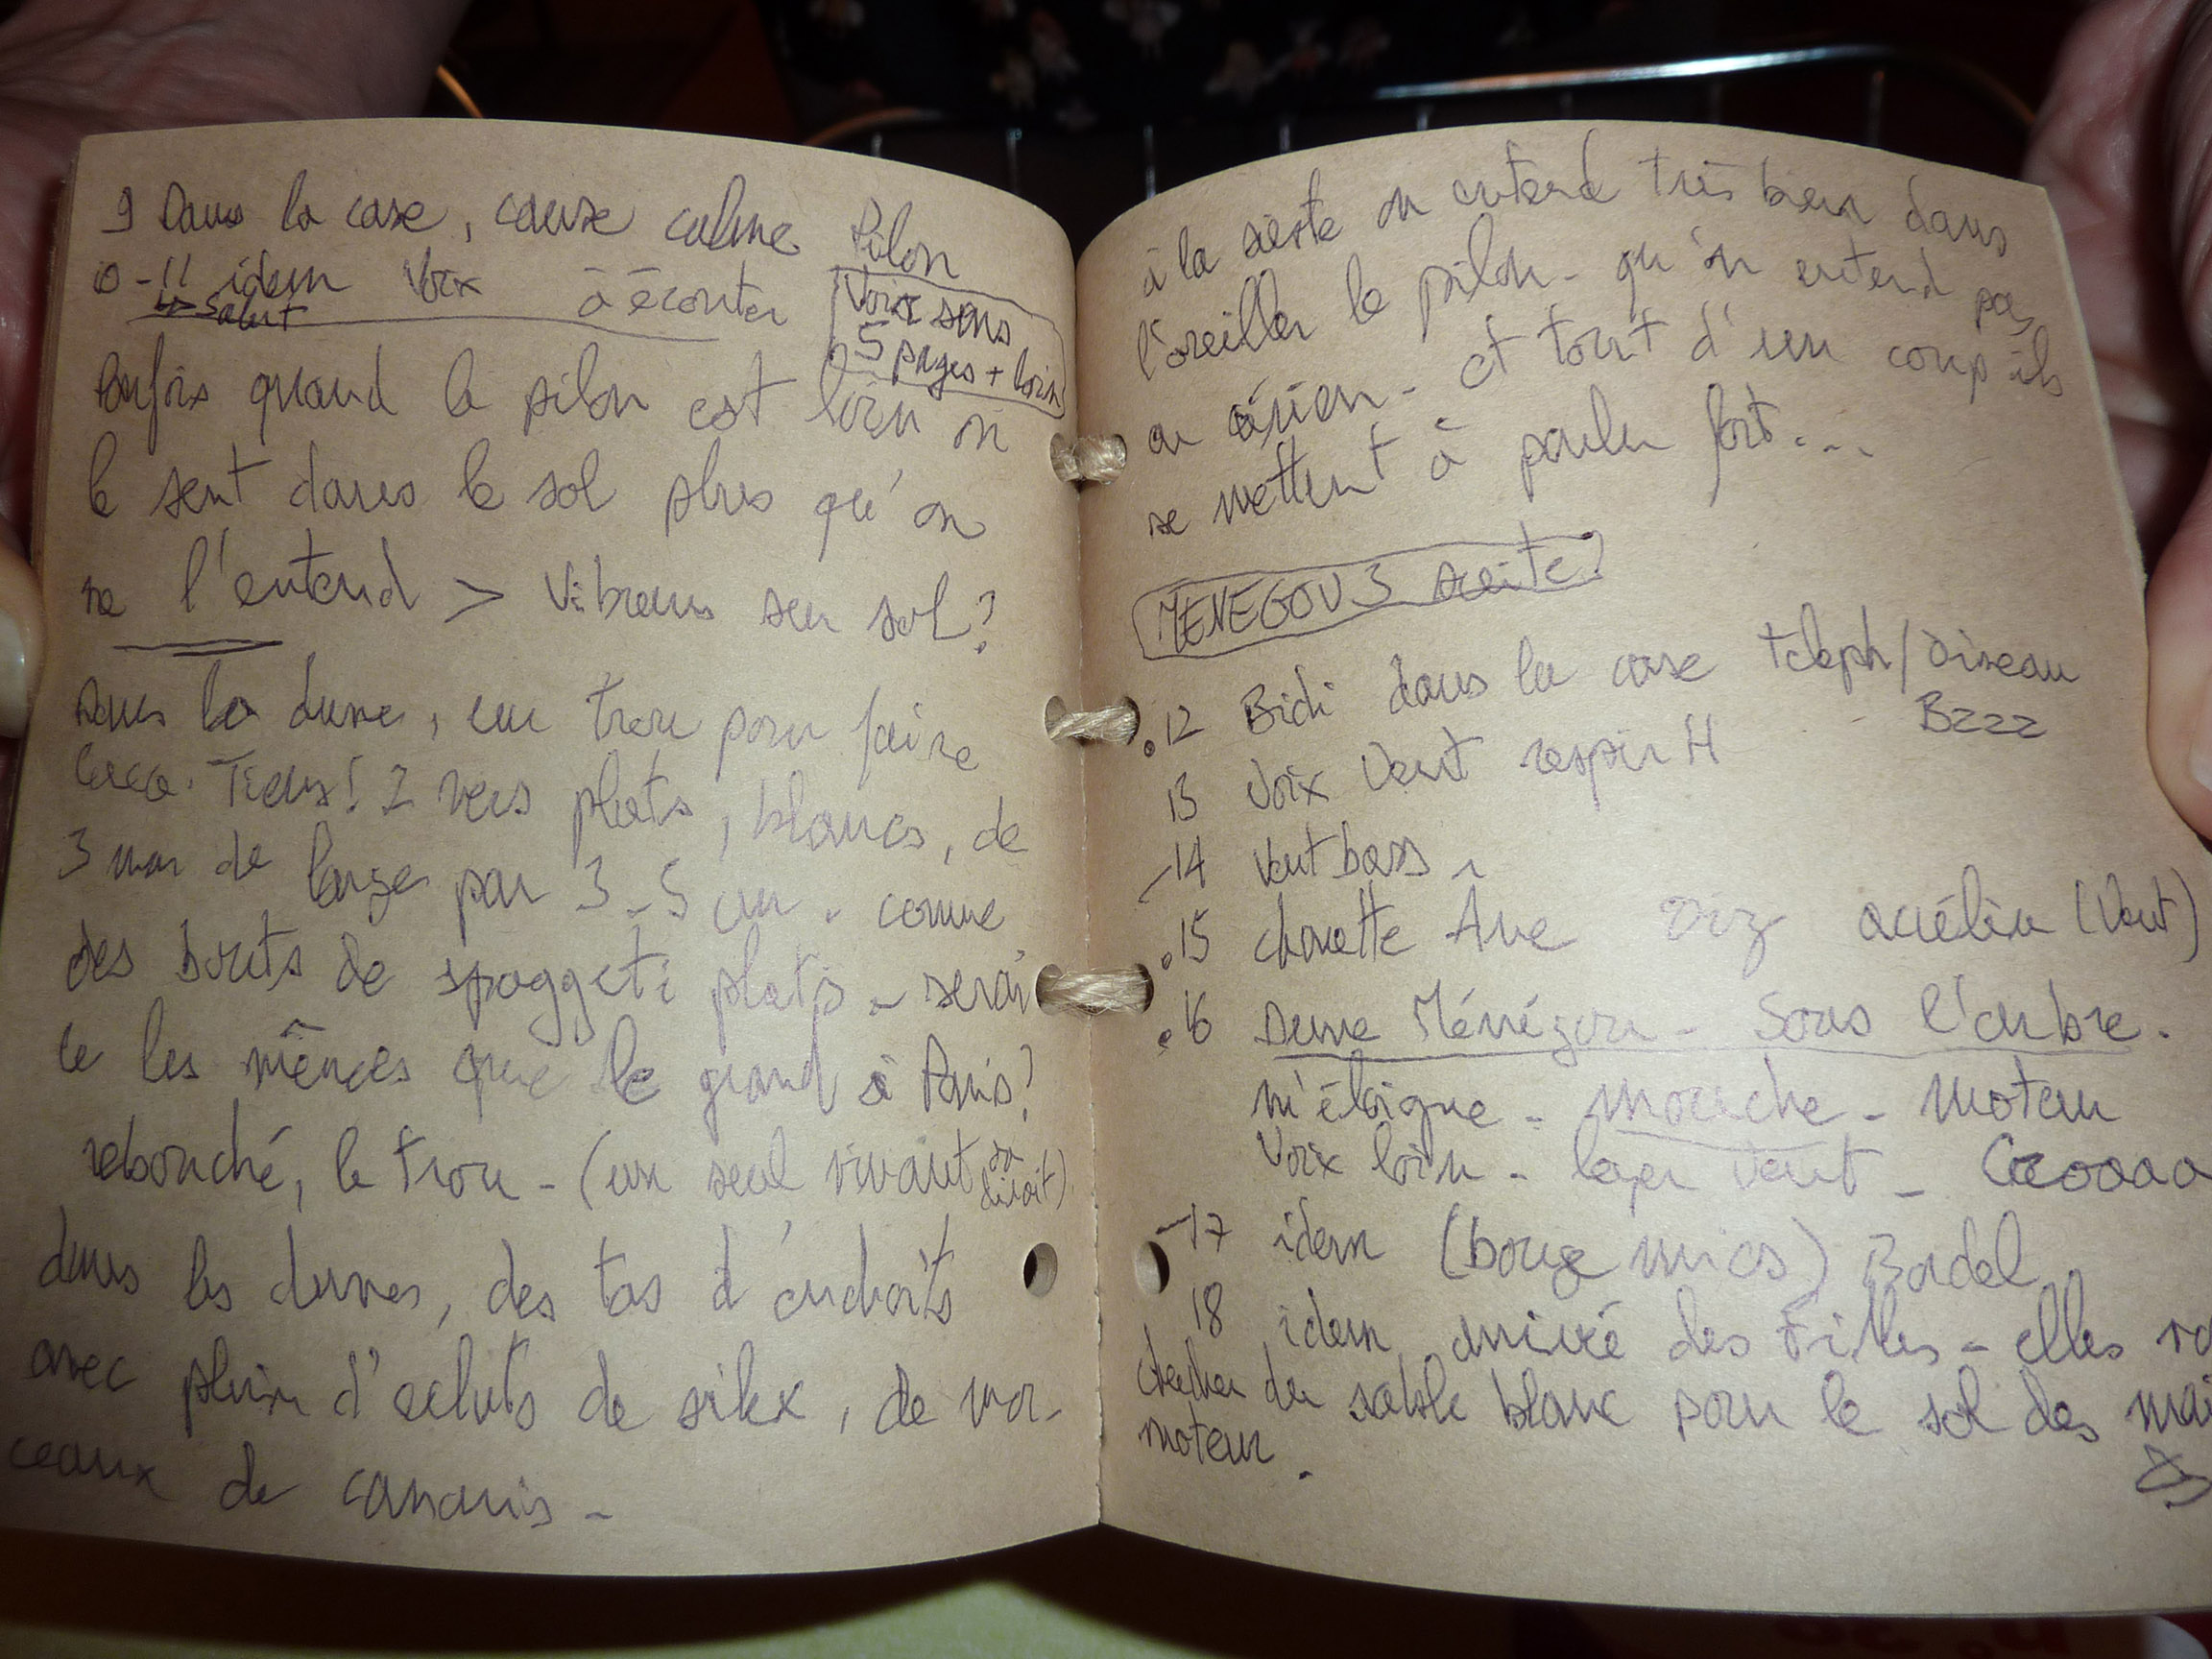 9 Dans la case, cause calme Pilon
10-11 idem Voix à écouter
↳ Salut
Voix sens
5 pages + loin
Parfois quand le pilon est loin on
le sent dans le sol plus qu'on
ne l'entend > Vibrans sur sol?
Dans la dune, un trou pour faire
caca. Tiens! 2 vers plats, blancs, de
3 mm de large par 3-5 cm. comme
des bouts de spaggeti plats - serai
ce les mêmes que le grand à Paris?
rebouché, le trou - (un seul vivant
dans les dunes, des tas d'endroits
avec plein d'eclats de silex, de mor-
ceaux de canaris -
à la sieste on entend très bien dans
l'oreiller le pilon - qu'on entend pas
en aérien - et tout d'un coup ils
se mettent à parler fort...
MENEGOU 3 suite!
.12 Bidi dans la case teleph/Oiseau
Bzzz
13 Voix Vent respir H
-14 Vent bass
.15 chouette Âne accélère (Vent)
.16 Dune Ménégou - Sous l'arbre.
m'éloigne - mouche - moteur
Voix loin - léger vent -
-17 idem (bouge mics) Badel
18 idem arrivé des Filles - elles
chercher du sable blanc pour le sol des mai
moteur.